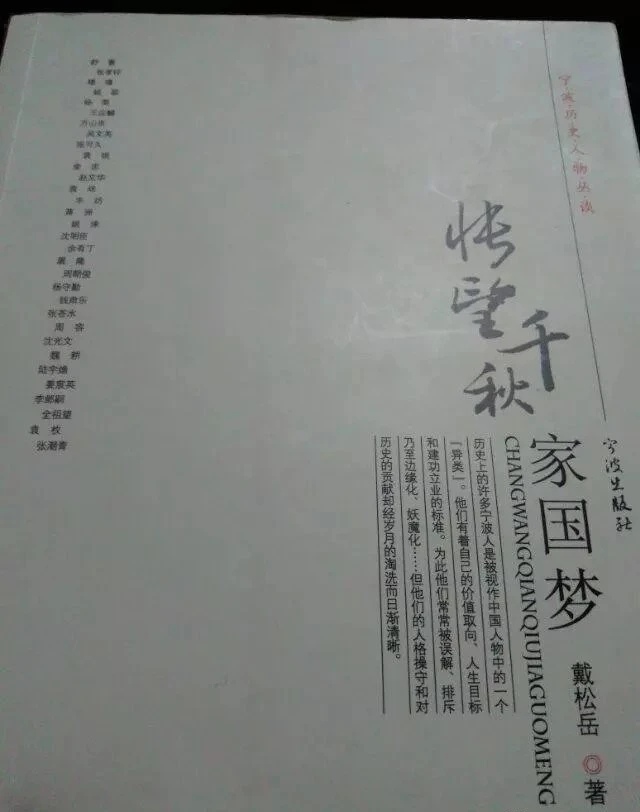 宁·波·历·史·人·物·丛·谈
怅望千秋
家国梦
CHANGWANGQIANQIUJIAGUOMENG
戴松岳 著
宁波出版社
历史上的许多宁波人是被视作中国人物中的一个
“异类”。他们有着自己的价值取向、人生目标
和建功立业的标准。为此他们常常被误解、排斥
乃至边缘化、妖魔化……但他们的人格操守和对
历史的贡献却经岁月的淘洗而日渐清晰。
舒亶
张孝祥
楼璹
楼钥
杨简
王应麟
吴文英
张可久
袁桷
余有丁
屠隆
周朝俊
杨守勤
钱肃乐
张苍水
周容
沈光文
魏耕
陆宇㷆
姜宸英
李邺嗣
全祖望
袁枚
张潮青